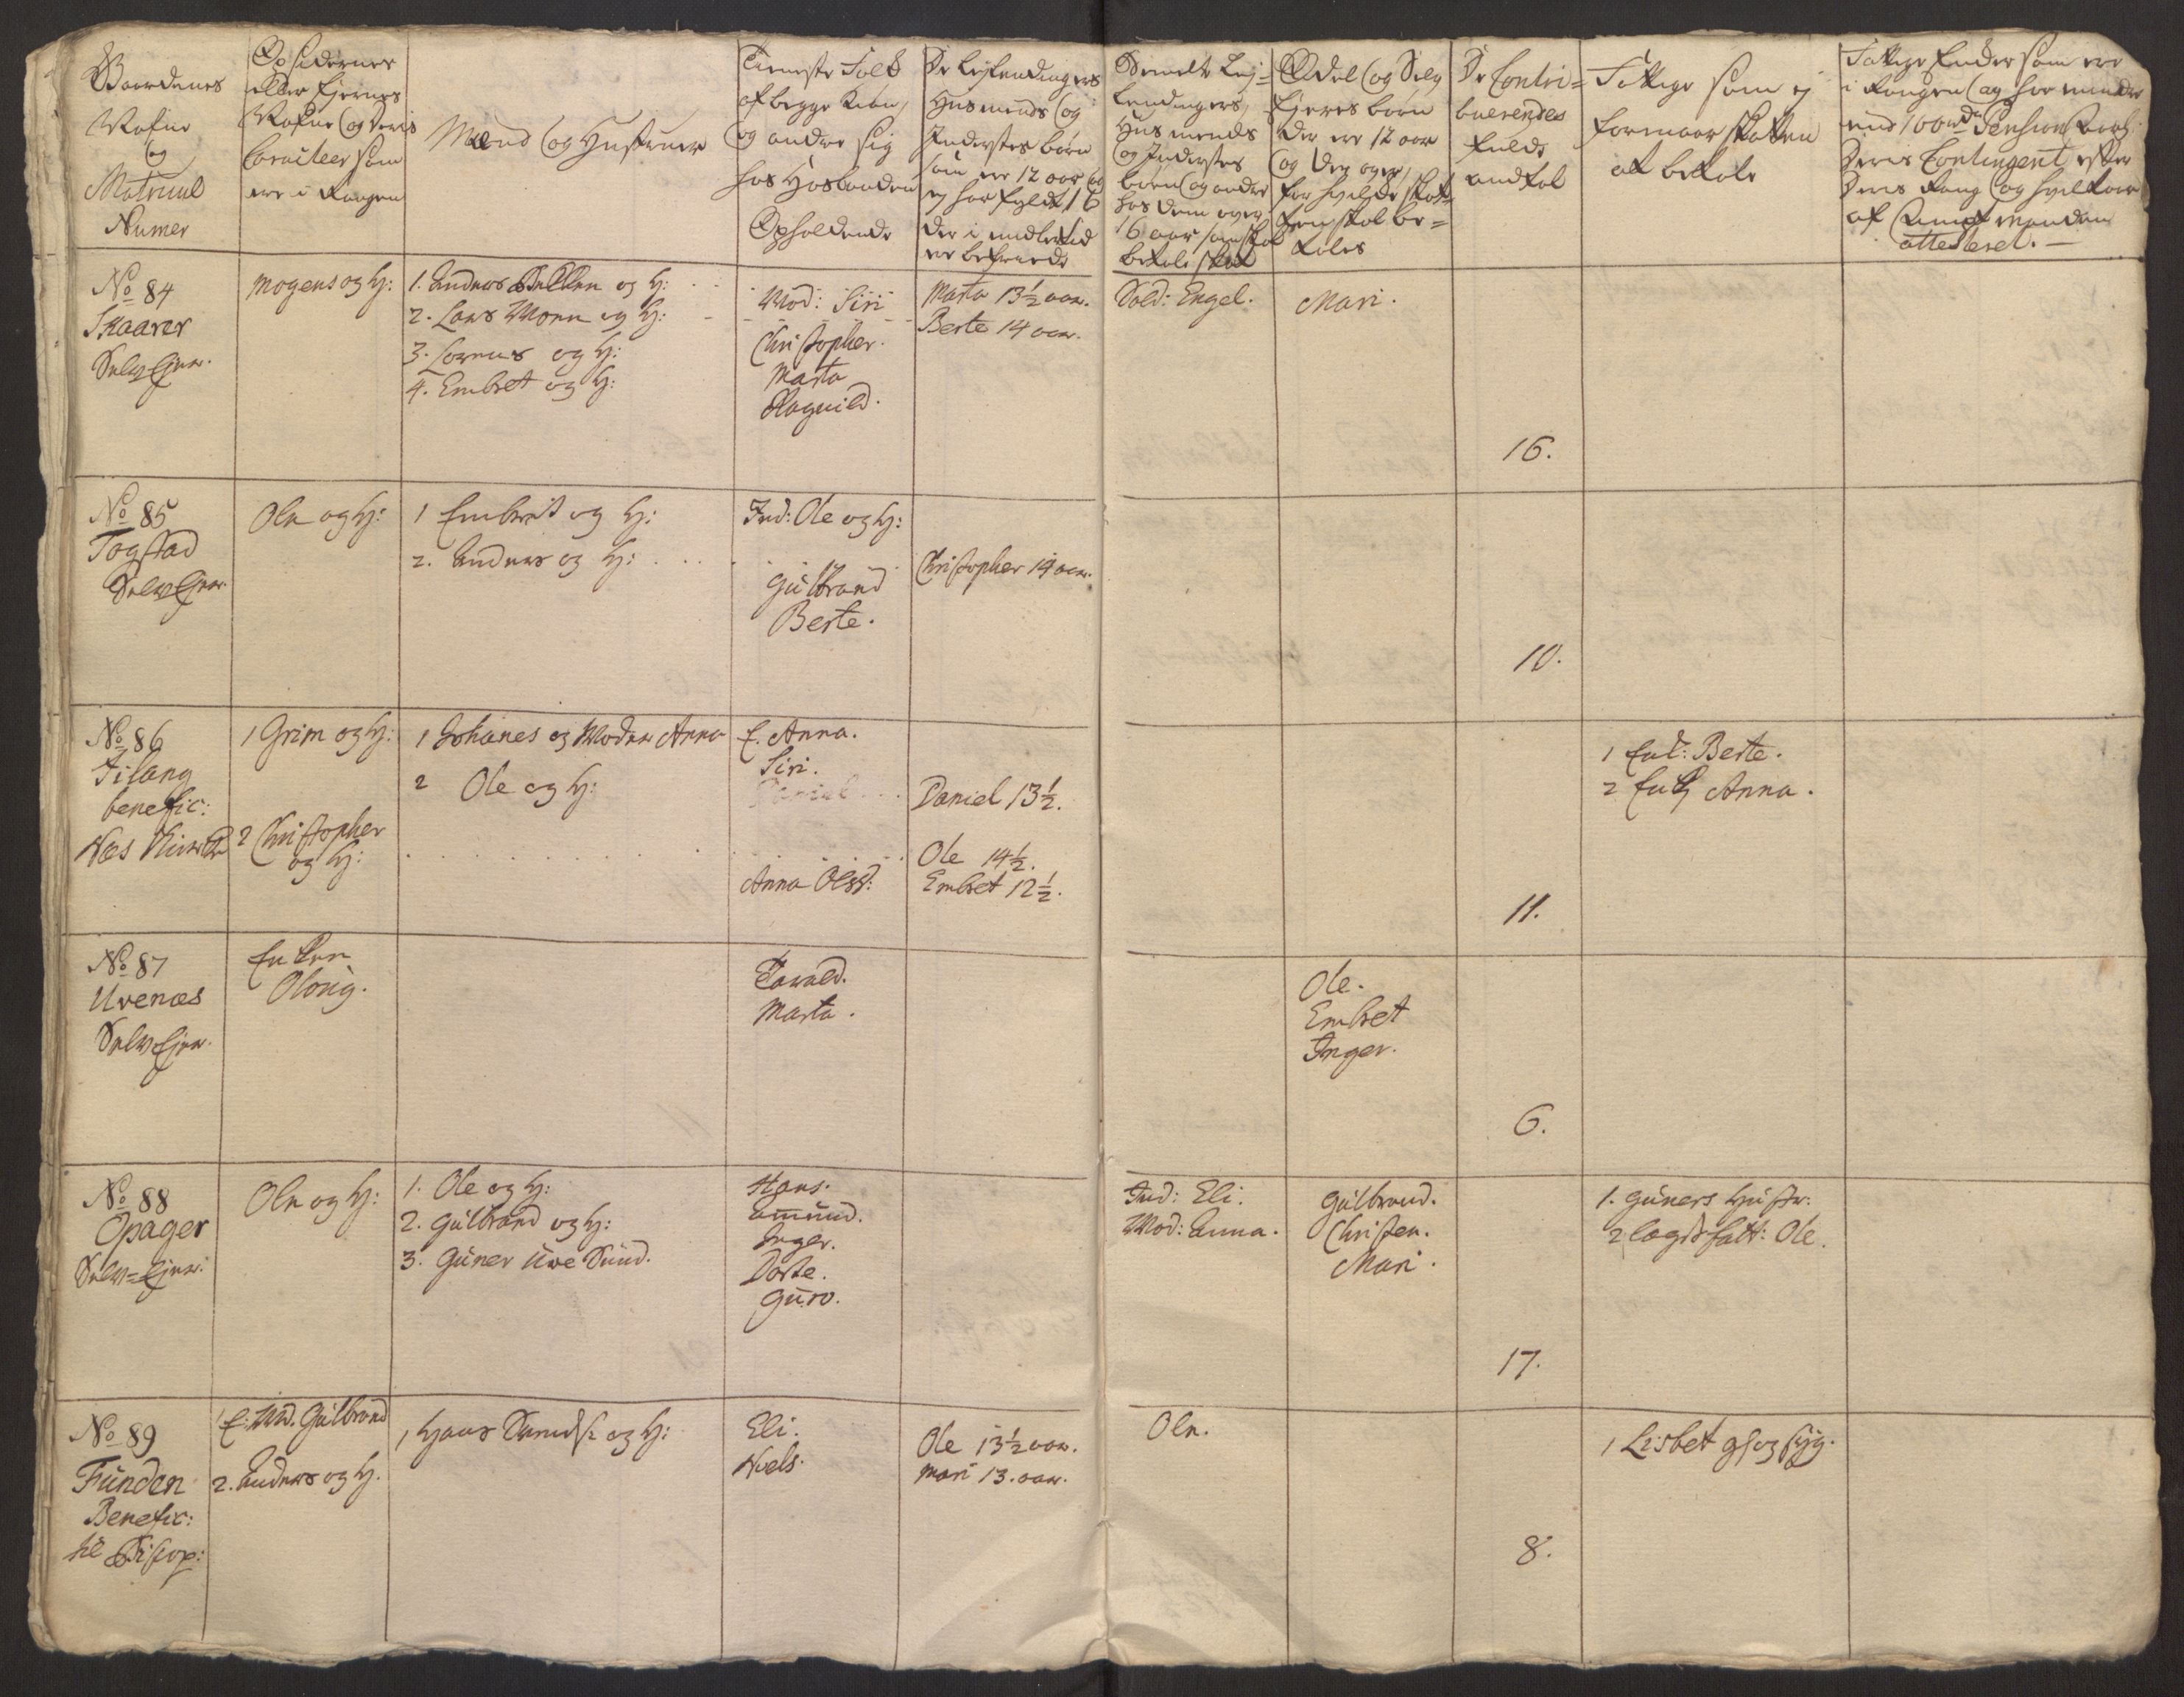 Gaardenes
Nafne
og
Matricul
Numer
Opsidernes
eller Ejernes
Nafne og deris
Caracteer som
ere i Rangen
Mænd og Hustruer
Tieneste Folk
af begge Kiøn,
og andre sig
hos Hosbonden
Opholdende
De Lejlendingers
Husmends og
Inderstes børn
som ere 12 aar og
ej har fyldt 16
der i midlertid
er befriede
Bemelte Lej-
lendingers,
Husmends
og Inderstes
børn og andre
hos dem over
16 aar som skal
betale skat
Odel og Selv
Ejeres børn
der ere 12 aar
og der over,
for hvilke skat-
ten skal be-
tales
De Contri-
buerendes
fulde
andtal
Fattige som ej
formaar skatten
at betale
Fattige Enker som ere
i Rangen og har mindre
end 100 rd Pension
Deris Contingent efter
Deris Rang og hvilket
af Amtmanden
attesteret.
No 84
Skaarer
Selv Ejer.
Mogens og H:
1. Anders og H:
2. Lars Moen og H:
3. Lorens og H:
4. Embret og H:
Mod: Siri
Christopher.
Marta
Ragnild.
Marta 13½ aar.
Berte 14 aar.
Sold: Engel.
Mari.
16.
No 85
Togstad
Selv Ejer.
Ole og H:
1 Embret og H:
2. Anders og H:
Ind: Ole og H:
Gulbrand
Berte.
Christopher 14 aar.
10.
No 86
Filang
benefic:
Næs Kirke
1 Grim og H:
2 Christopher
og H:
1 Johanes og Moder Anna
2 Ole og H:
E. Anna.
Siri.
Daniel
Anna Olsd:
Daniel 13½.
Ole 14½.
Embret 12½.
11.
1 Ent: Berte.
2 Enk Anna.
No 87
Uvenæs
Selv Ejer.
Enken
Oloug.
Tarald.
Marta.
Ole.
Embret
Inger.
6.
No 88
Opager
Selv=Ejer.
Ole og H:
1. Ole og H:
2. Gulbrand og H:
3. Guner Uve Sund.
Hans.
Amund.
Inger.
Dorte.
Guro.
Ind: Eli.
Mod: Anna.
Gulbrand.
Christen.
Mari.
17.
1. Guners Hustr:
2 Lægdsfatt: Ole.
No 89
Funden
Benefic:
til Bisop:
1 E: Md. Gulbrand
2. Anders og H.
1 Hans Svends: og H:
Eli.
Niels.
Ole 13½ aar.
Mari 13. aar.
Ole.
8.
1 Lisbet gl og syg.